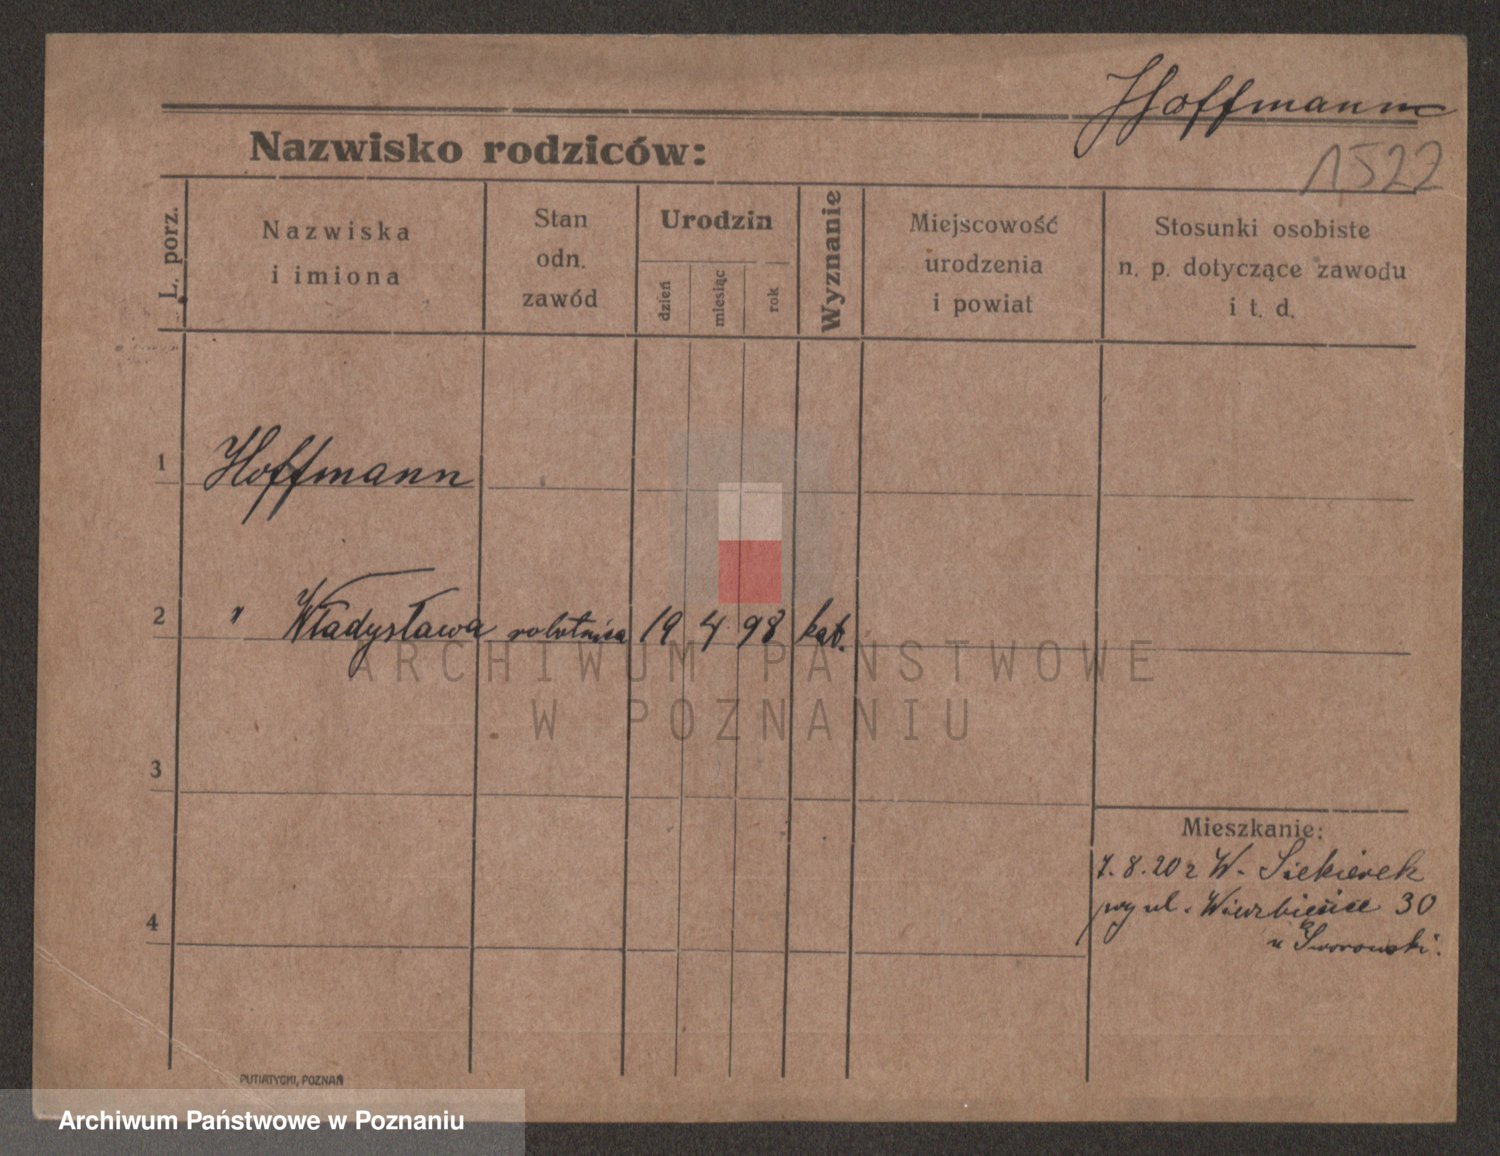 Hoffmann
1522
Nazwisko rodziców:
L. porz.
Nazwiska
i imiona
Stan
odn.
zawód
Urodzin
dzień
miesiąc
rok
Wyznanie
Miejscowość
urodzenia
i powiat
Stosunki osobiste
n. p. dotyczące zawodu
i t. d.
1 Hoffmann
2 " Władysława robotnica 19 4 98 kat.
ARCHIWUM PAŃSTWOWE
W POZNANIU
3
Mieszkanie:
7.8.20 z W. Siekierek
przy ul. Wierzbięcice 30
u Sworowski.
4
PUTIATYCKI, POZNAŃ
Archiwum Państwowe w Poznaniu